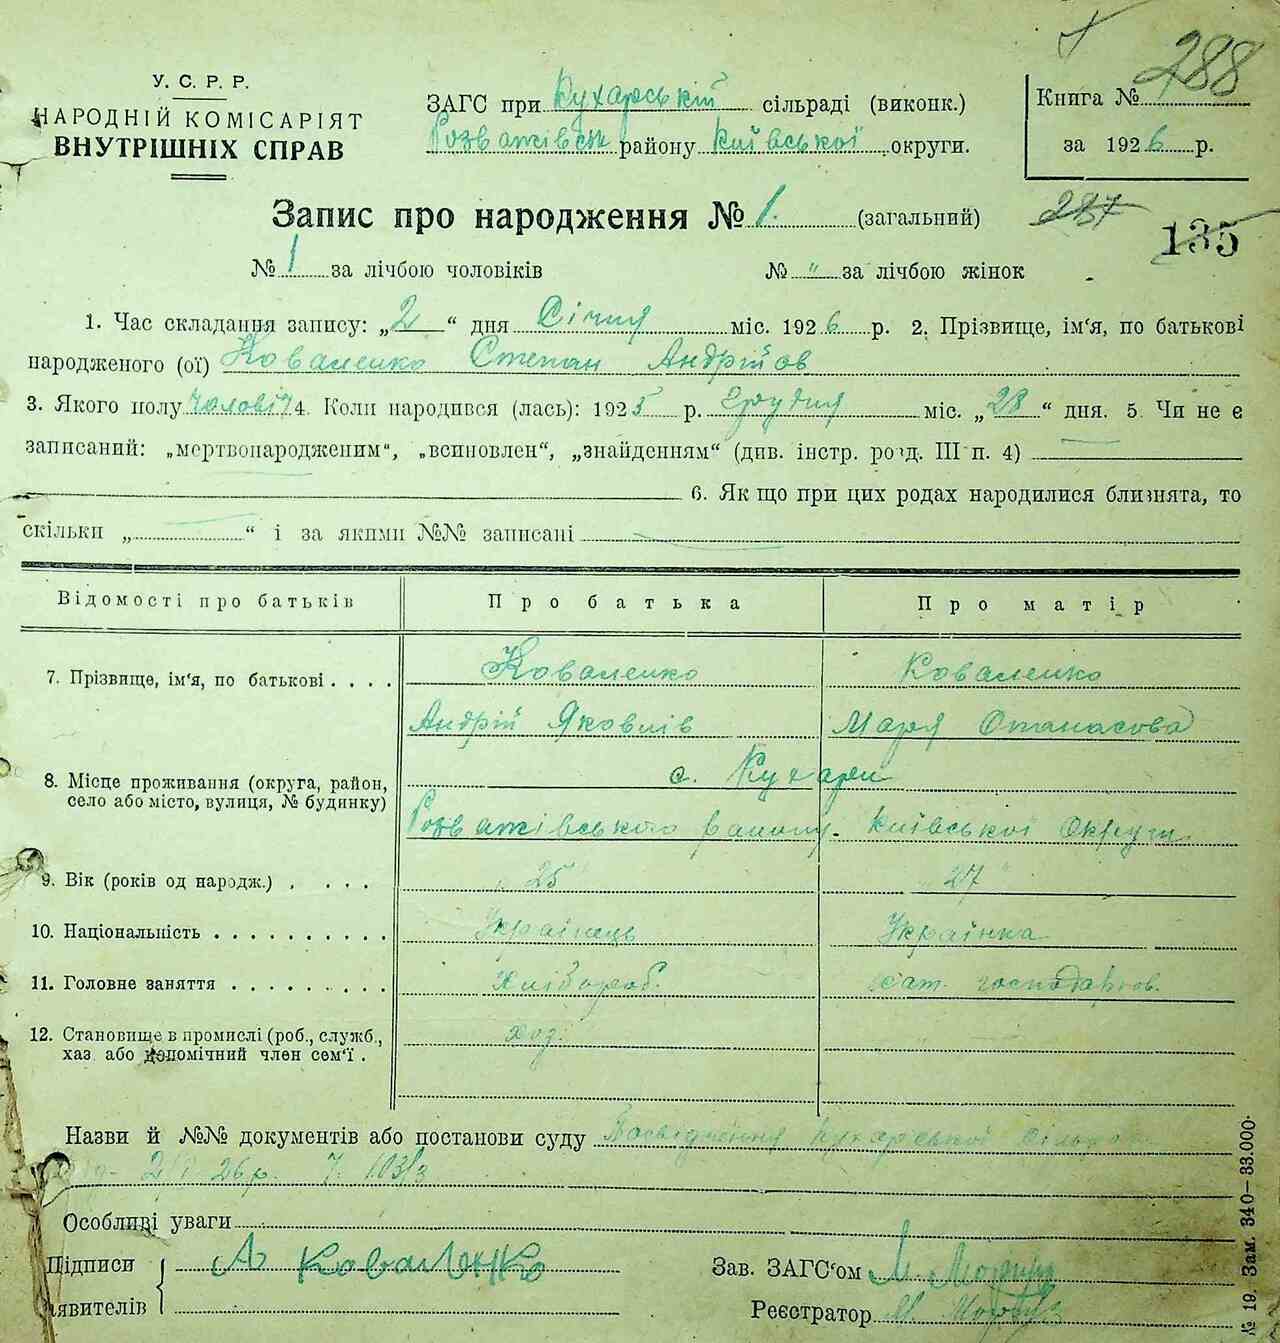 288
У. С. Р. Р.
НАРОДНІЙ КОМІСАРІЯТ
ВНУТРІШНІХ СПРАВ
ЗАГС при Кухарській сільраді (виконк.)
Розважівськ району Київської округи.
Книга №
за 1926 р.
Запис про народження № 1. (загальний)
287
135
№ 1 за лічбою чоловіків № " за лічбою жінок
1. Час складання запису: „2“ дня Січня міс. 1926 р. 2. Прізвище, ім‘я, по батькові
народженого (ої) Коваленко Степан Андрійов
3. Якого полу чоловіч 4. Коли народився (лась): 1925 р. Грудня міс. „28“ дня. 5. Чи не є
записаний: „мертвонародженим“, „всиновлен“, „знайденням“ (див. інстр. розд. III п. 4)
6. Як що при цих родах народилися близнята, то
скільки „ “ і за якими №№ записані
Відомості про батьків Про батька Про матір
7. Прізвище, ім‘я, по батькові . . . . Коваленко Коваленко
Андрій Яковлів Маря Отанасова
8. Місце проживання (округа, район,
село або місто, вулиця, № будинку)
с. Кухари
Розважівського району. Київської Округи
9. Вік (років од народж.) . . . . „25“ „27“
10. Національність . . . . . . . . . . Українець Українка
11. Головне заняття . . . . . . . . . . Хлібороб. господарств.
12. Становище в промислі (роб., служб.,
хаз. або допомічний член сем‘ї .
хоз.
Назви й №№ документів або постанови суду Посвідчення Кухарської Сільради
2/I 26 р.
Особливі уваги
Підписи
явителів
А Коваленко
Зав. ЗАГС‘ом
Реєстратор
№ 19. Зам. 340—33.000.